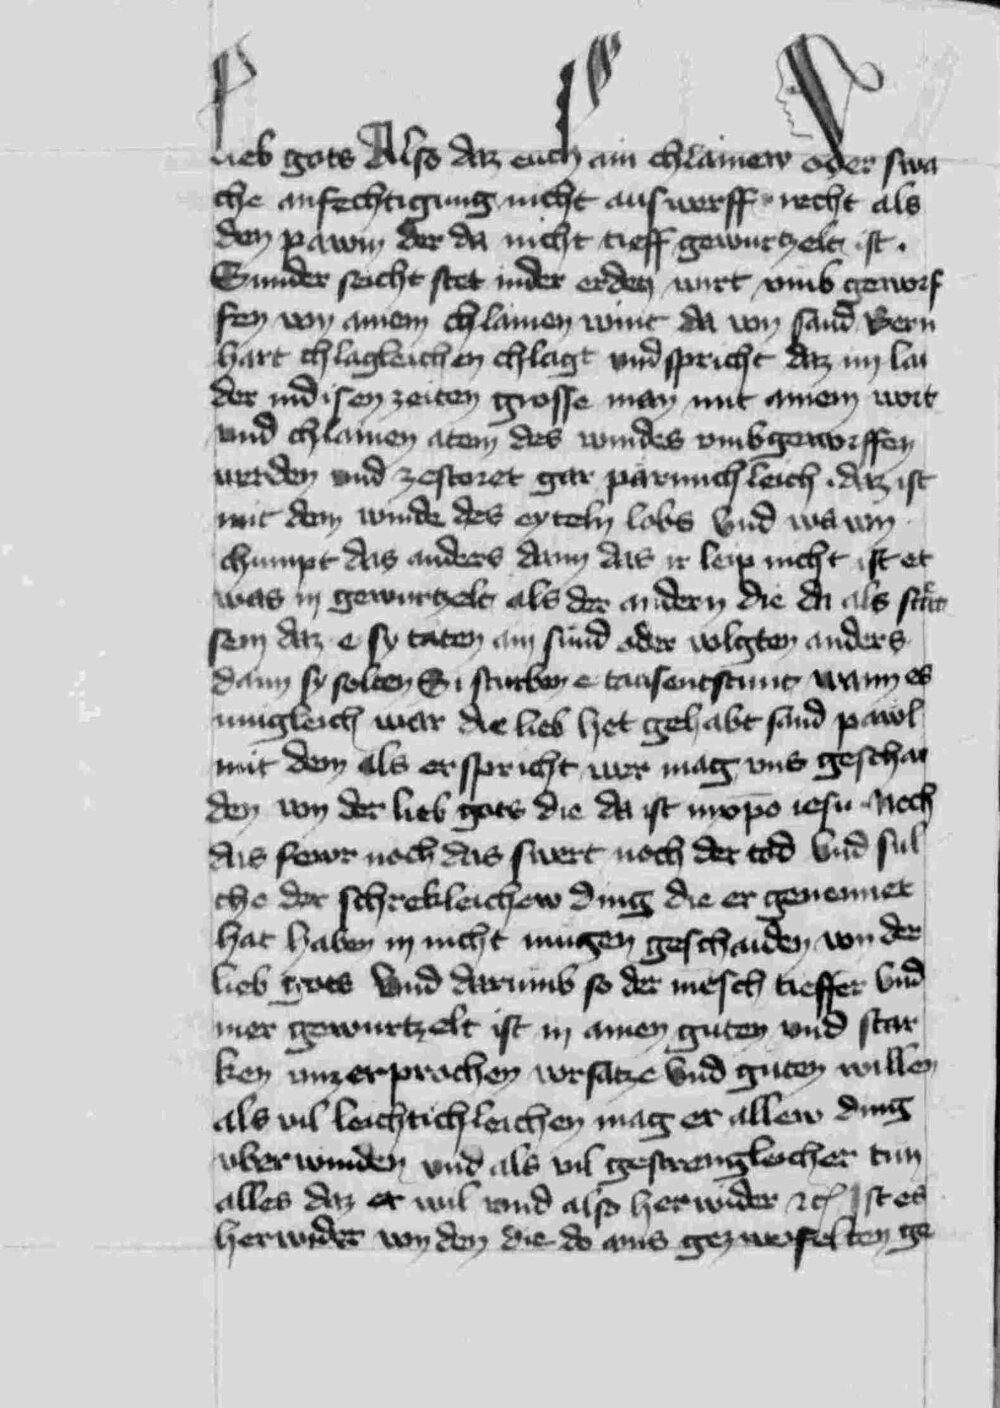 lieb gots Also daz euch ain chlainew oder swa
che anfechtigung nicht auswerff recht als
den pawm der da nicht tieff gewurtzelt ist.
Sunder seicht stet inder erden wirt vmb geworf
fen von ainem chlainen wint da von sand Bern
hart chlagleichen chlagt vnd spricht daz im lai
der indisen zeiten grosse man mit ainem wort
vnd chlainen atem des windes vmbgeworffen
werden vnd zestoret gar parmichleich. daz ist
mit dem winde des eyteln lobs Vnd wa von
chumpt das anders dann das ir leip nicht ist et
was in gewurtzelt als der andern die da als starck
sein daz e sy taten ain sund oder volgten anders
dann sy solten Si sturben e tausentstunt wann es
mugleich war die lieb het gehabt sand pawl
mit dem als er spricht wer mag vns geschai
den von der lieb gots die da ist in xpo iesu Noch
das fewr noch das swert noch der tod Vnd sul
che der schrekleichew ding die er genennet
hat haben in nicht mugen geschaiden von der
lieb gots Vnd darumb so der mensch tieffer Vnd
mer gewurtzelt ist in ainen guten vnd star
ken vnzerprochen vorsatze Vnd guten willen
als vil leichtichleichen mag er allew ding
vberwinden vnd als vil gestrengleicher tun
alles daz er wil vnd also herwider etc Ist es
herwider von den die do ains gezweifelten ge